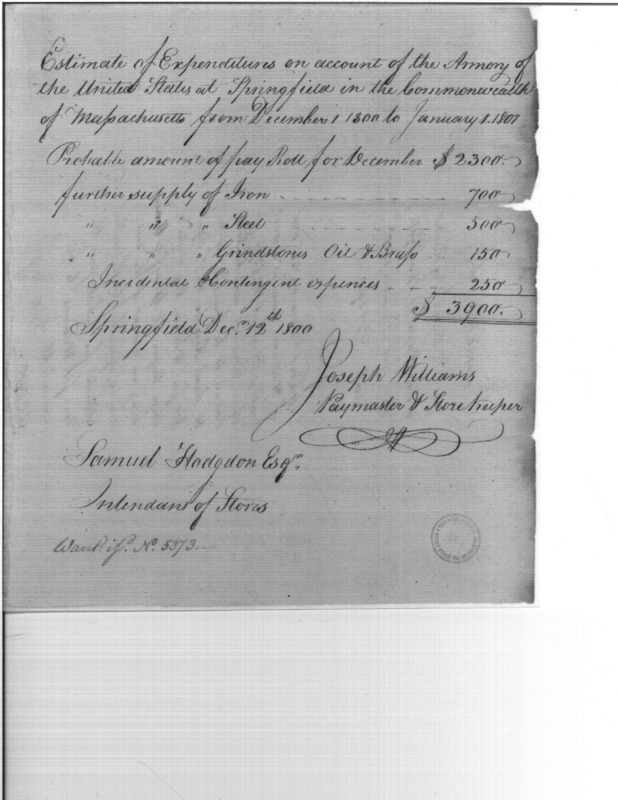 Estimate of Expenditures on account of the Armory of
the United States at Springfield in the Commonwealth
of Massachusetts from December 1 1800 to January 1. 1801
Probable amount of pay Roll for December $ 2300.
further supply of Iron 700
" " " Steel 500
" " " Grindstones Oil & Brass 150
Incidental & Contingent expences 250
$ 3900.
Springfield Decr. 12th 1800
Joseph Williams
Paymaster & Store keeper
Samuel Hodgdon Esqr.
Intendant of Stores
Warrt. isd. No. 5373.